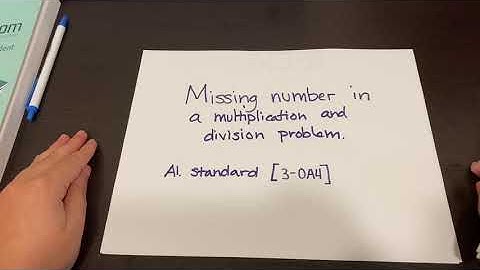 om
dent
Missing number in
a multiplication and
division problem.
Al. standard [3-OA4]